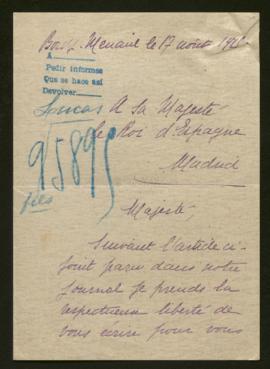 le 17 août
A
Pedir informes
Que se hace así
Devolver
A Sa Majesté
le Roi d'Espagne
Madrid
95895
fils
Majesté,
Suivant l'article ci-
joint paru dans notre
journal je prends la
respectueuse liberté de
vous écrire pour vous